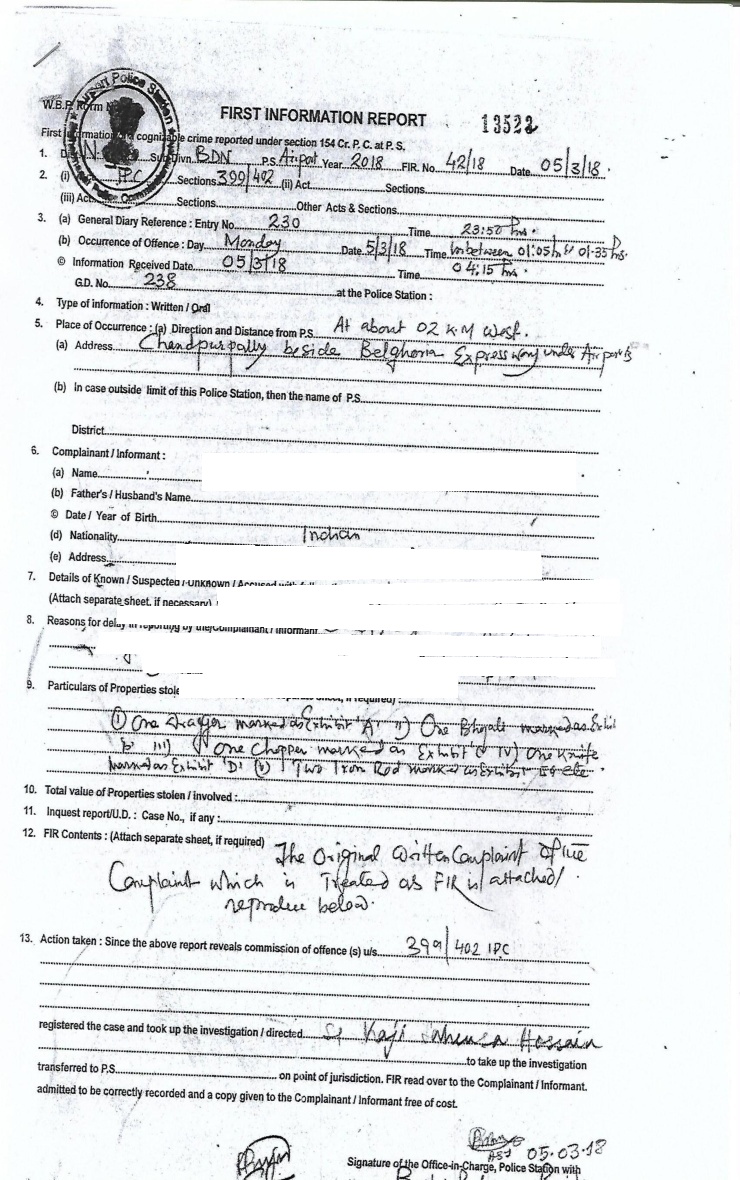 Airport Police Station
W.B.P. Form N
FIRST INFORMATION REPORT
13522
First Information of a cognizable crime reported under section 154 Cr. P. C. at P. S.
1. D Sub-Divn. BDN P.S. Airport Year 2018 FIR. No. 42/18 Date 05/3/18.
2. (i) IPC Sections 399/402 (ii) Act Sections
(iii) Act Sections Other Acts & Sections
3. (a) General Diary Reference : Entry No. 230 Time 23:50 hrs.
(b) Occurrence of Offence : Day Monday Date 5/3/18 Time in between 01:05 h to 01:35 hrs.
© Information Received Date 05/3/18 Time 04:15 hrs.
G.D. No. 238 at the Police Station :
4. Type of information : Written / Oral
5. Place of Occurrence : (a) Direction and Distance from P.S. At about 02 K.M West.
(a) Address Chandpurpally beside Belghoria Expressway under Airport PS
(b) In case outside limit of this Police Station, then the name of P.S.
District
6. Complainant / Informant :
(a) Name
(b) Father's / Husband's Name
© Date / Year of Birth
(d) Nationality Indian
(e) Address
7. Details of Known / Suspected / Unknown / Accused with
(Attach separate sheet, if necessary)
8. Reasons for delay in reporting by the Complainant / Informant
9. Particulars of Properties stole if required)
(i) One Dragger marked as Exhibit 'A' ii) One Bhojali marked as Exhibit
b iii) One Chopper marked as Exhibit 'C' iv) One Knife
marked as Exhibit 'D' (v) Two Iron Rod marked as Exhibit E etc.
10. Total value of Properties stolen / involved :
11. Inquest report/U.D. : Case No., if any :
12. FIR Contents : (Attach separate sheet, if required) The Original Written Complaint of the
Complaint which is Treated as FIR is attached/
reproduce below.
13. Action taken : Since the above report reveals commission of offence (s) u/s 399/402 IPC
registered the case and took up the investigation / directed SI Kaji Hossain
to take up the investigation
transferred to P.S. on point of jurisdiction. FIR read over to the Complainant / Informant.
admitted to be correctly recorded and a copy given to the Complainant / Informant free of cost.
ASI 05.03.18
Signature of the Office-in-Charge, Police Station with